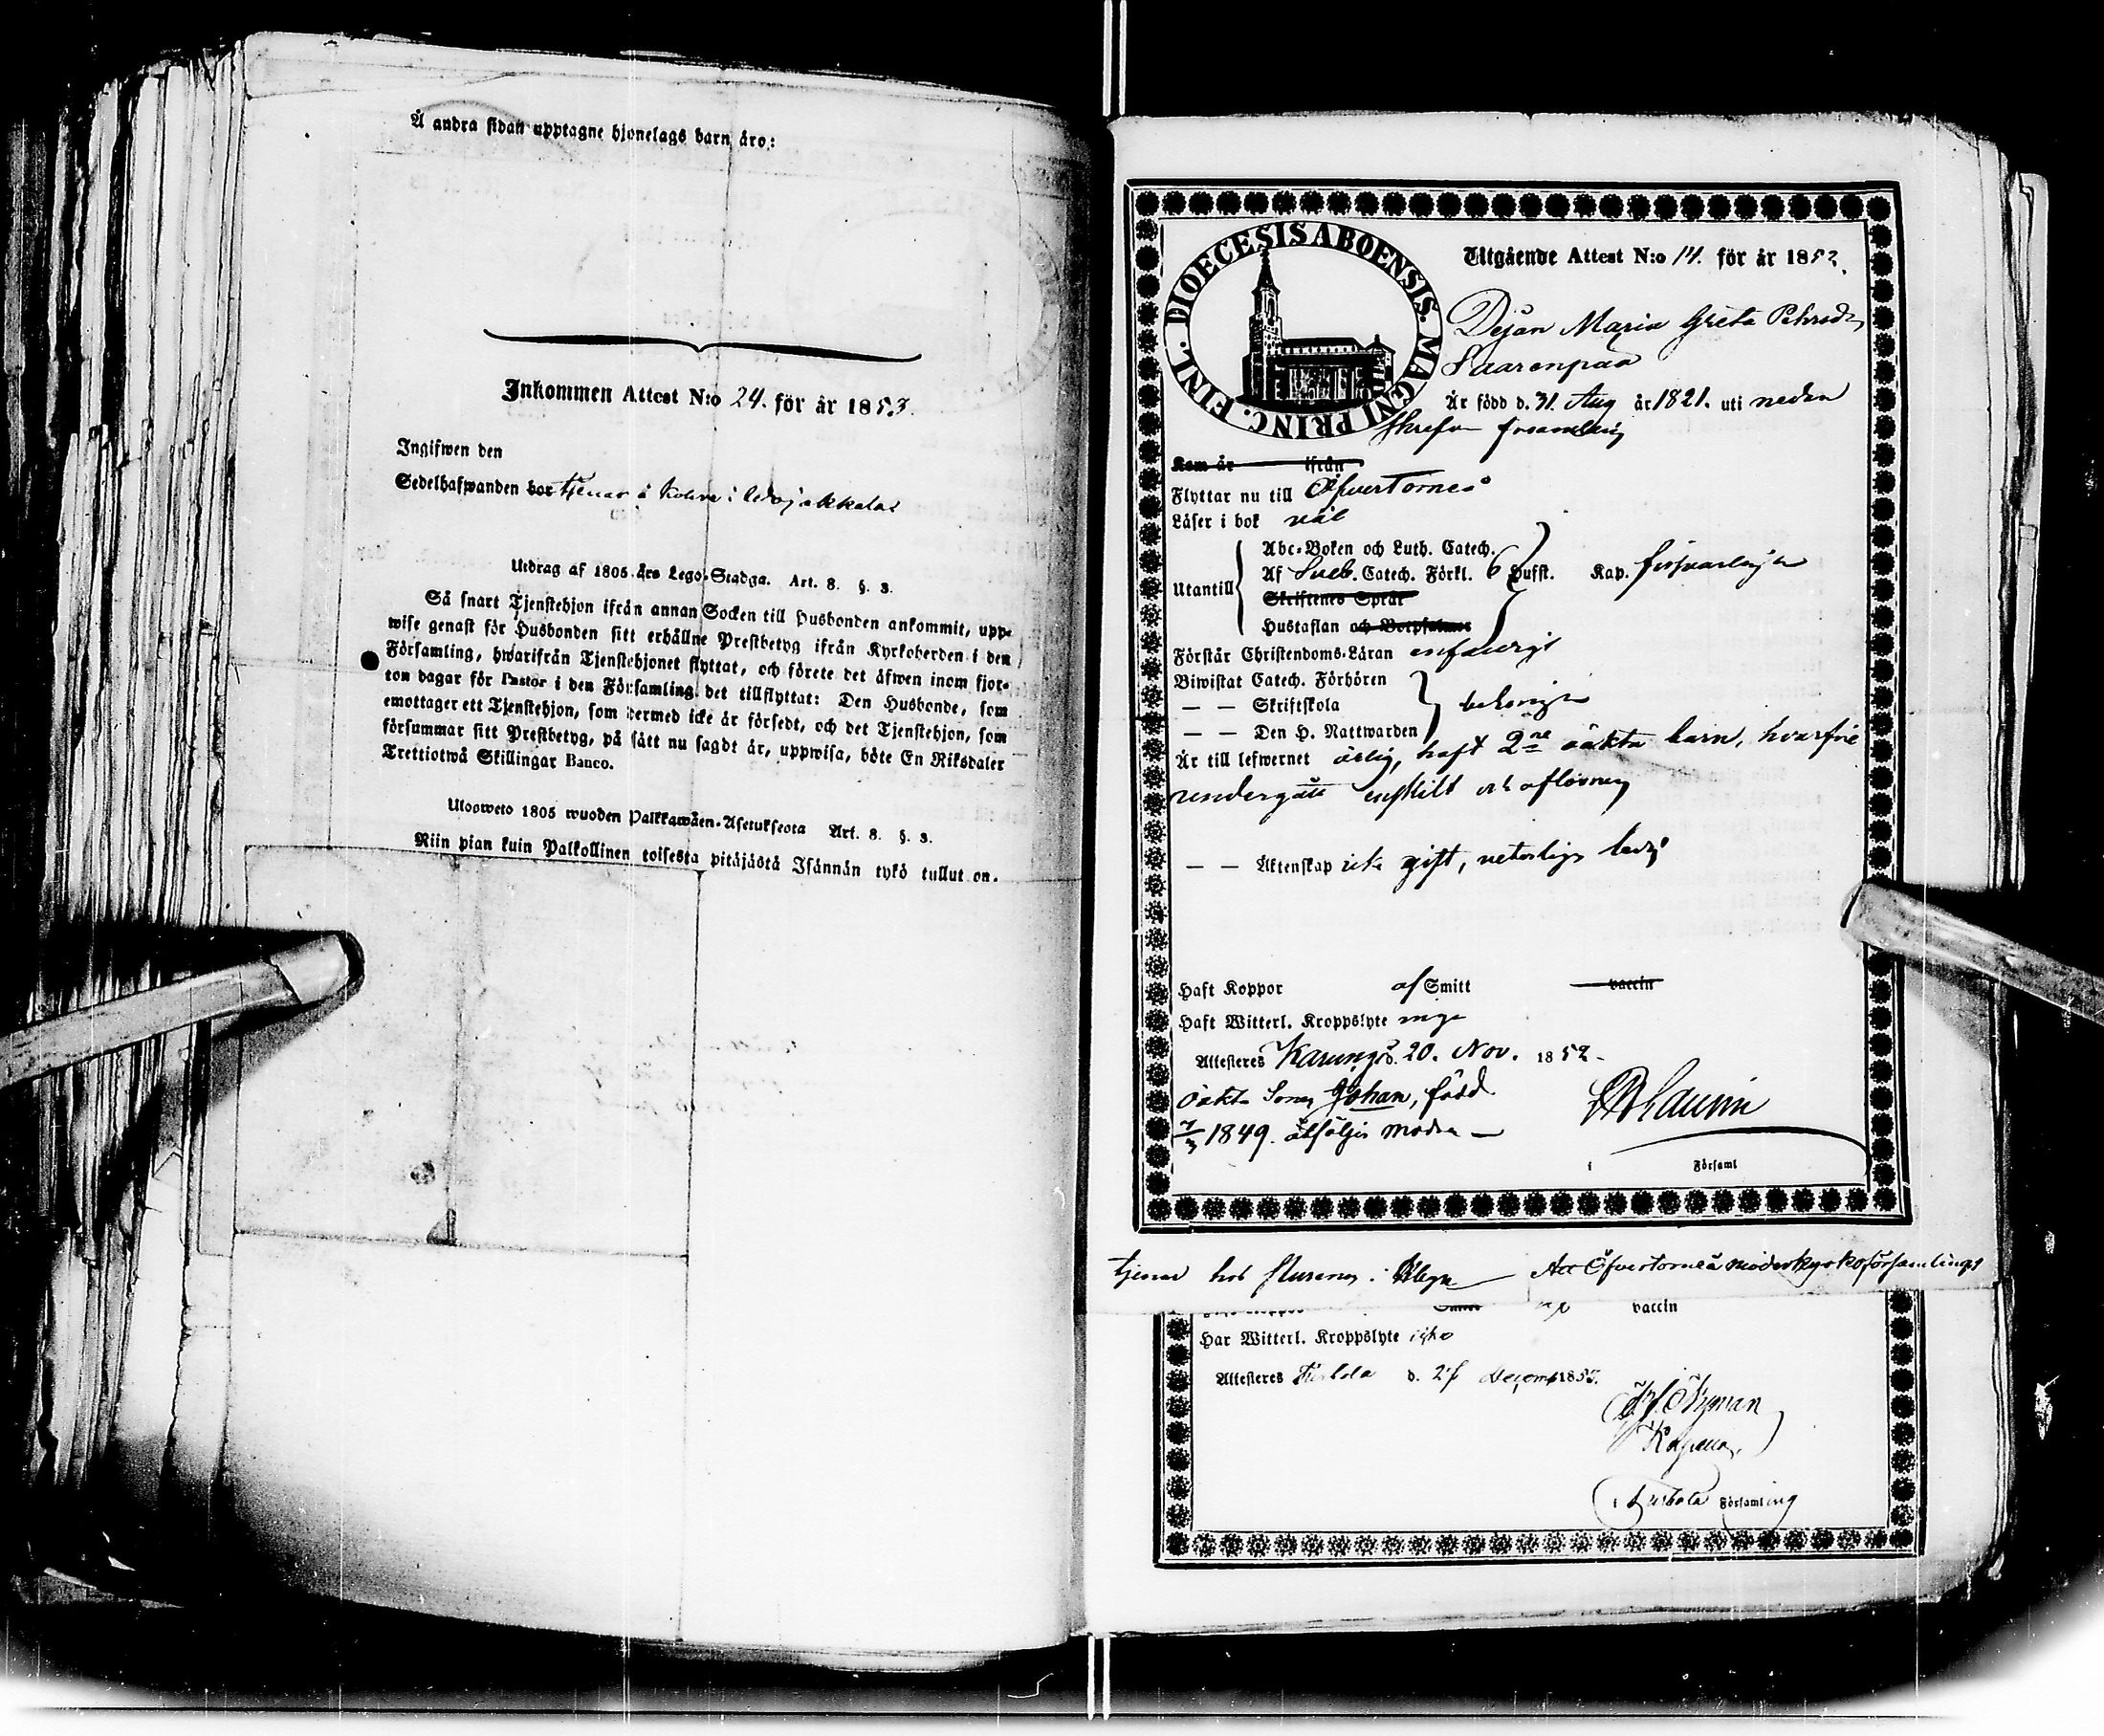 Å andra sidan upptagne hjonelags barn äro:
Inkommen Attest N:o 24. för år 1853.
Ingifwen den
Sedelhafwanden bor tjenar å i
Utdrag af 1805 års Lego-Stadga. Art. 8. §. 3.
Så snart Tjenstehjon ifrån annan Socken till Husbonden ankommit, upp-
wise genast för Husbonden sitt erhållne Prestbetyg ifrån Kyrkoherden i den
Församling, hwarifrån Tjenstehjonet flyttat, och förete det äfwen inom fjor-
ton dagar för Pastor i den Församling det tillflyttat: Den Husbonde, som
emottager ett Tjenstehjon, som dermed icke är försedt, och det Tjenstehjon, som
försummar sitt Prestbetyg, på sätt nu sagdt är, uppwisa, böte En Riksdaler
Trettiotwå Skillingar Banco.
Ulosweto 1805 wuoden Palkkawäen-Asetuksesta Art. 8. §. 3.
Niin pian kuin Palkollinen toisesta pitäjästä Isännän tykö tullut on.
DIOECESIS ABOENSIS. MAGNI PRINC. FINL.
Utgående Attest N:o 14. för år 1852.
Dejan Maria Greta Pehrsdr
Saarenpaa
Är född d. 31. Aug år 1821. uti nedan
skrefne församling
Kom år ifrån
Flyttar nu till Öfvertorneå
Läser i bok väl
Utantill
Abc-Boken och Luth. Catech.
Af Sveb. Catech. Förkl. 6 Hufst. Kap. försvarligen
Skriftenes Språk
Hustaflan och Botpsalmer
Förstår Christendoms-Läran enfaldigt
Biwistat Catech. Förhören
— — Skriftskola behörigen
— — Den H. Nattwarden
Är till lefwernet ärlig, haft 2ne oäkta barn, hvarför
undergått enskilt och aflösning
— — Äktenskap icke gift, veterligen ledig
Haft Koppor af Smitt vaccin
Haft Witterl. Kroppslyte inga
Attesteres Karungi d. 20. Nov. 1852.
oäkta Sonen Johan, född
7/3 1849. åtföljer modren —
i Församl
tjenar hos i — Att Öfvertorneå moderkyrkoförsamlings
vaccin
Har Witterl. Kroppslyte icke
Attesteres Turtola d. 27 Decemb 1853.
Nyman
Kapellan
i Turtola Församling